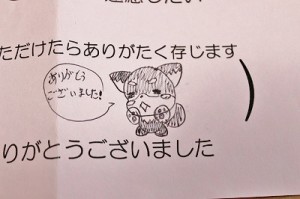 ただけたらありがたく存じます
ありがとう
ございました!
りがとうございました